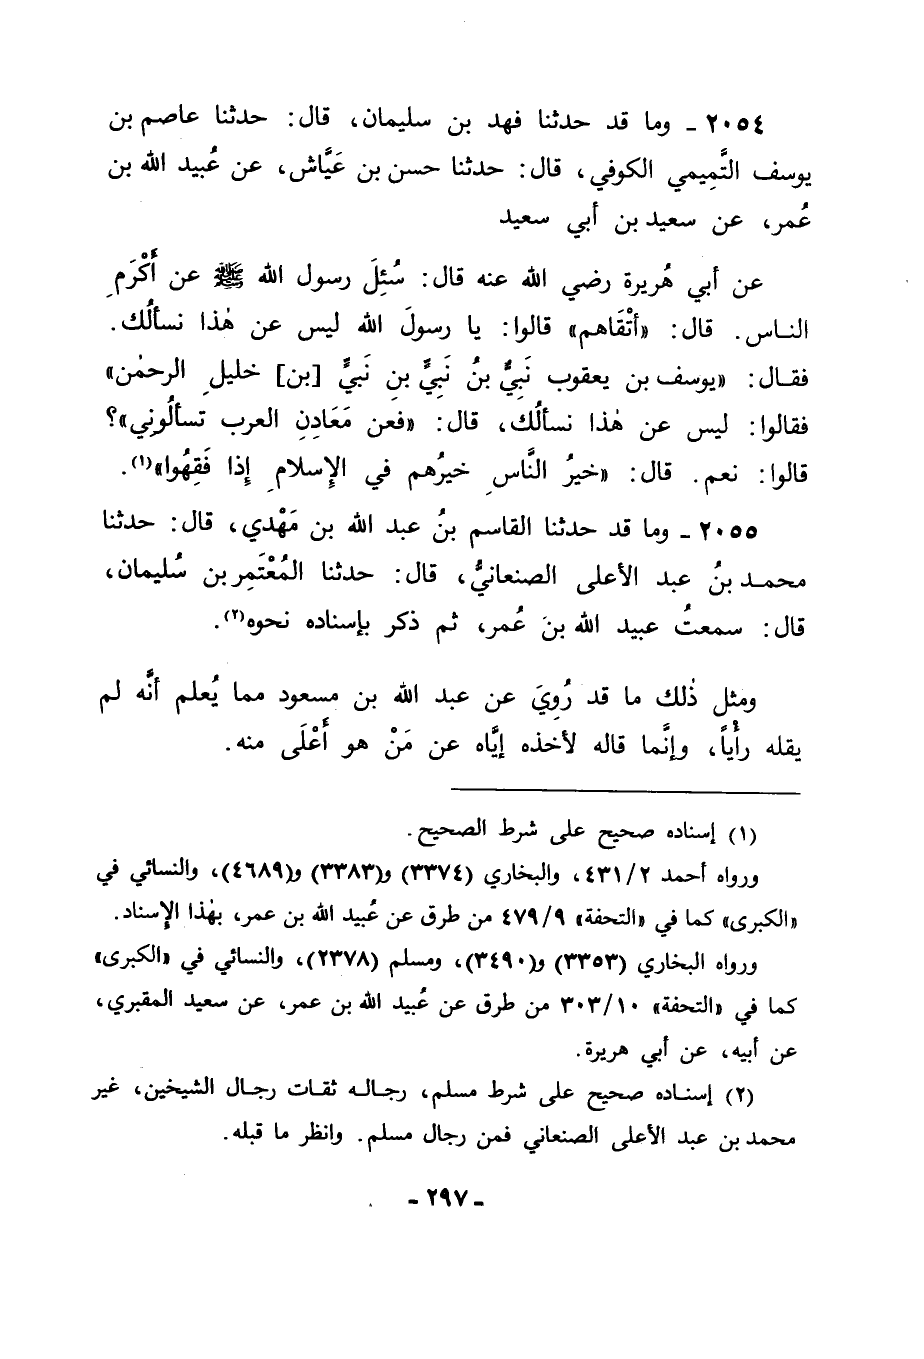 ٢٠٥٤ ـ وما قد حدثنا فهد بن سليمان، قال: حدثنا عاصم بن
يوسف التَّمِيمي الكوفي، قال: حدثنا حسن بن عَيَّاش، عن عُبيد الله بن
عُمر، عن سعيد بن أبي سعيد
عن أبي هُريرة رضي الله عنه قال: سُئِلَ رسول الله ﷺ عن أَكْرَمِ
الناس. قال: «أتْقَاهم» قالوا: يا رسولَ الله ليس عن هٰذا نسألُك.
فقال: «يوسف بن يعقوب نَبِيُّ بنُ نَبِيٍّ بنِ نَبيٍّ [بن] خليلِ الرحمٰن»
فقالوا: ليس عن هٰذا نسألُك، قال: «فعن مَعَادِنِ العرب تسألُونِي»؟
قالوا: نعم. قال: «خيرُ النَّاسِ خيرُهم في الإِسلامِ إِذا فَقِهُوا»(١).
٢٠٥٥ ـ وما قد حدثنا القاسم بنُ عبد الله بن مَهْدي، قال: حدثنا
محمد بنُ عبد الأعلى الصنعانيُّ، قال: حدثنا المُعْتَمِر بن سُليمان،
قال: سمعتُ عبيد الله بنَ عُمر، ثم ذكر بإسناده نحوه(٢).
ومثل ذٰلك ما قد رُوِيَ عن عبد الله بن مسعود مما يُعلم أنَّه لم
يقله رأْياً، وإنَّما قاله لأخذه إيَّاه عن مَنْ هو أَعْلَى منه.
(١) إسناده صحيح على شرط الصحيح.
ورواه أحمد ٤٣١/٢، والبخاري (٣٣٧٤) و(٣٣٨٣) و(٤٦٨٩)، والنسائي في
«الكبرى» كما في «التحفة» ٤٧٩/٩ من طرق عن عُبيد الله بن عمر، بهٰذا الإِسناد.
ورواه البخاري (٣٣٥٣) و(٣٤٩٠)، ومسلم (٢٣٧٨)، والنسائي في «الكبرى»
كما في «التحفة» ٣٠٣/١٠ من طرق عن عُبيد الله بن عمر، عن سعيد المقبري،
عن أبيه، عن أبي هريرة.
(٢) إسناده صحيح على شرط مسلم، رجاله ثقات رجال الشيخين، غير
محمد بن عبد الأعلى الصنعاني فمن رجال مسلم. وانظر ما قبله.
ـ ٢٩٧ ـ